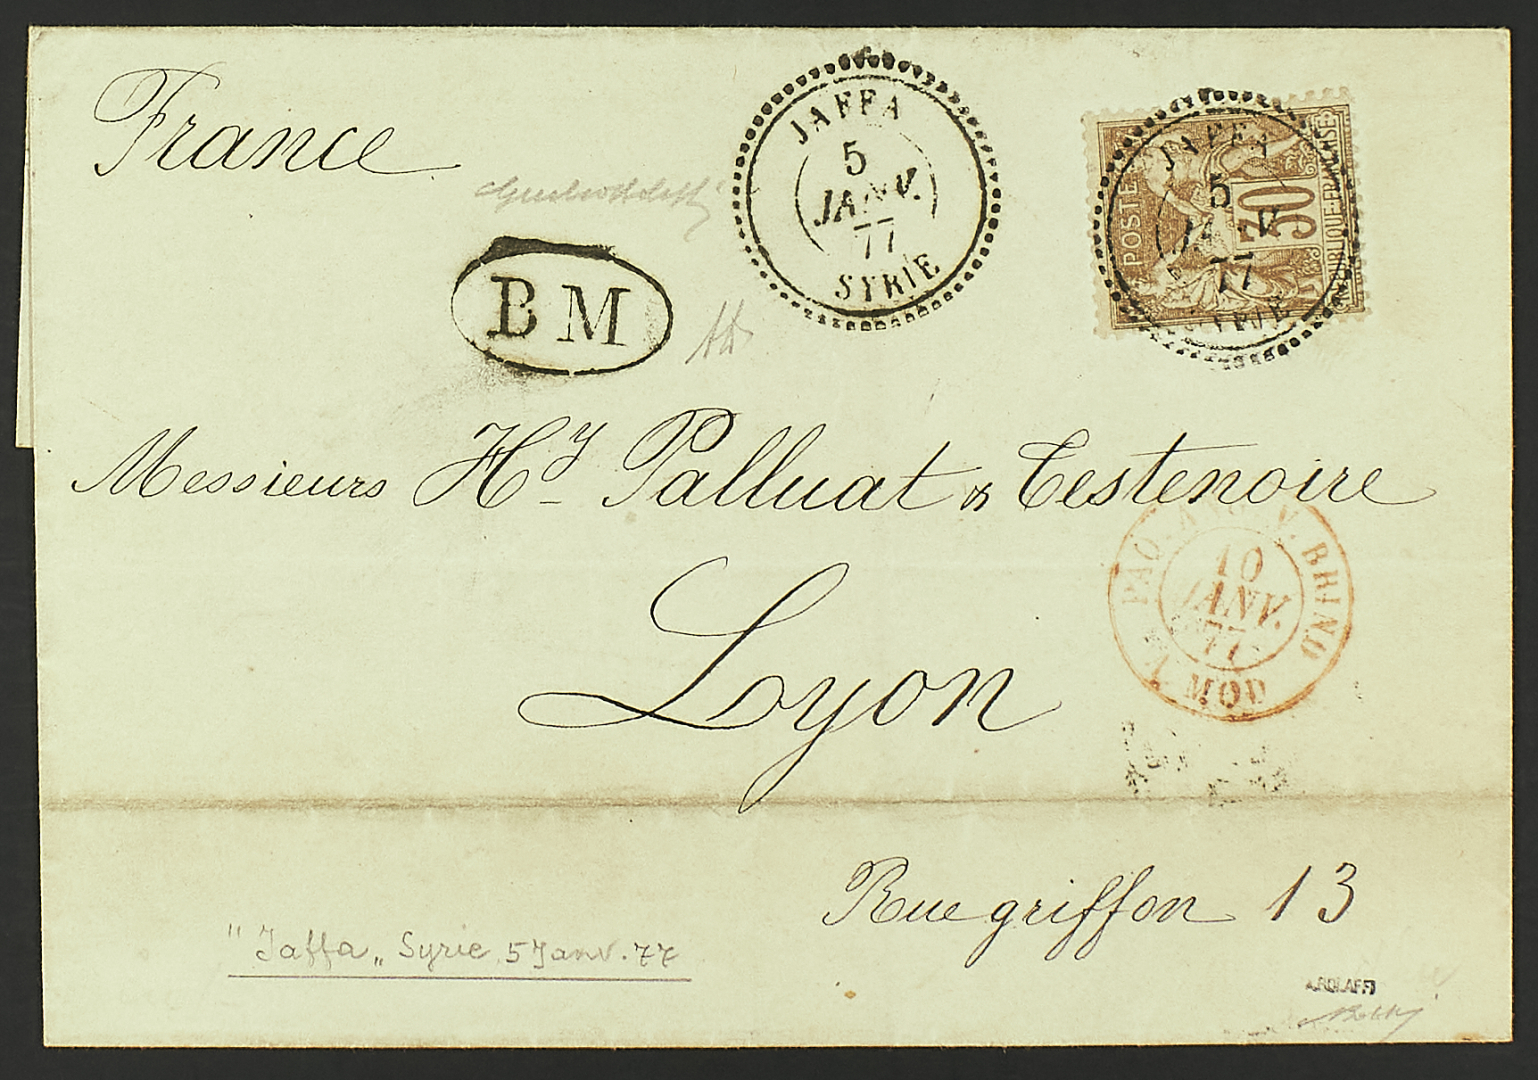 France
JAFFA
5
JANV.
77
SYRIE
JAFFA
5
JANV.
77
SYRIE
POSTES
30
REPUBLIQUE FRANÇAISE
BM
Messieurs Hy Palluat & Testenoire
PAQ. ANG. V. BRIND
10
JANV.
77
V. MOD
Lyon
Rue griffon 13
"Jaffa„ Syrie 5 Janv. 77
A. BOLAFFI